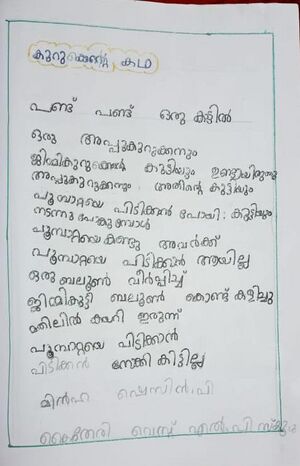 കുറുക്കന്റെ കഥ
പണ്ട് പണ്ട് ഒരു കാട്ടിൽ
ഒരു അപ്പുകുറുക്കനും
ജിമ്മികുറുക്കന്റെ കുട്ടിയും ഉണ്ടായിരുന്നു
അപ്പുകുറുക്കനും അതിന്റെ കുട്ടിയും
പൂമ്പാറ്റയെ പിടിക്കാൻ പോയി. കുട്ടിയും
നടന്നു പോകുമ്പോൾ
പൂമ്പാറ്റയെ കണ്ടു അവർക്ക്
പൂമ്പാറ്റയെ പിടിക്കാൻ ആയില്ല
ഒരു ബലൂൺ വീർപ്പിച്ച്
ജിമ്മികുട്ടി ബലൂൺ കൊണ്ട് കളിച്ചു
മതിലിൽ കയറി ഇരുന്ന്
പൂമ്പാറ്റയെ പിടിക്കാൻ
പിടിക്കാൻ നോക്കി കിട്ടില്ല
മിൻഹ ഷെസിൻ.പി
കൈതേരി വെസ്റ്റ് എൽ.പി സ്കൂൾ